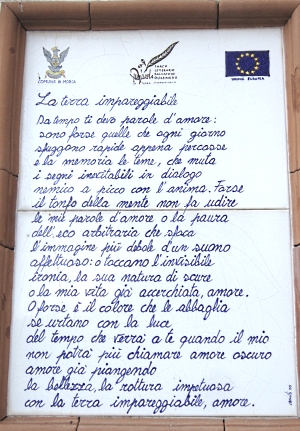 COMUNE DI MORCA
PARCO
LETTERARIO
SALVATORE
QUASIMODO
UNIONE EUROPEA
La terra impareggiabile
Da tempo ti devo parole d'amore:
sono forse quelle che ogni giorno
sfuggono rapide appena percosse
e la memoria le teme, che muta
i segni inevitabili in dialogo
nemico a picco con l'anima. Forse
il tonfo della mente non fa udire
le mie parole d'amore o la paura
dell'eco arbitraria che sfoca
l'immagine più debole d'un suono
affettuoso: o toccano l'invisibile
ironia, la sua natura di scure
o la mia vita già accerchiata, amore.
O forse è il colore che le abbaglia
se urtano con la luce
del tempo che verrà a te quando il mio
non potrà più chiamare amore oscuro
amore già piangendo
la bellezza, la rottura impetuosa
con la terra impareggiabile, amore.